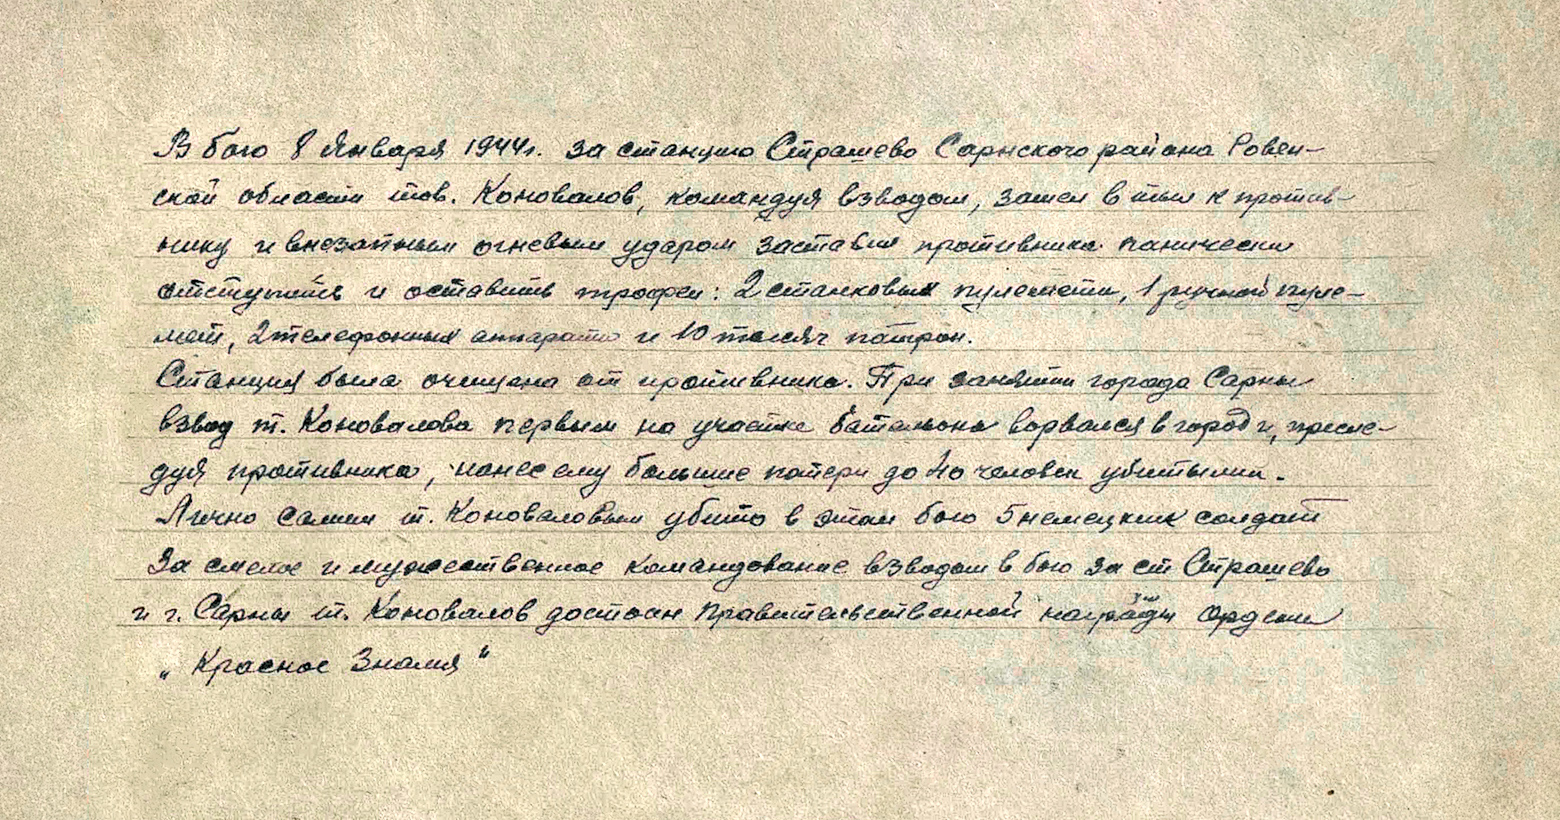 В бою 8 Января 1944г. за станцию Страшево Сарнского района Ровен-
ской области тов. Коновалов, командуя взводом, зашел в тыл к против-
нику и внезапным огневым ударом заставил противника панически
отступить и оставить трофеи: 2 станковых пулемета, 1 ручной пуле-
мет, 2 телефонных аппарата и 10 тысяч патрон.
Станция была очищена от противника. При занятии города Сарны
взвод т. Коновалова первым на участке батальона ворвался в город и, пресле-
дуя противника, нанес ему большие потери до 40 человек убитыми.
Лично самим т. Коноваловым убито в этом бою 5 немецких солдат
За смелое и мужественное командование взводом в бою за ст Страшево
и г. Сарны т. Коновалов достоин Правительственной награды Ордена
„Красное Знамя"